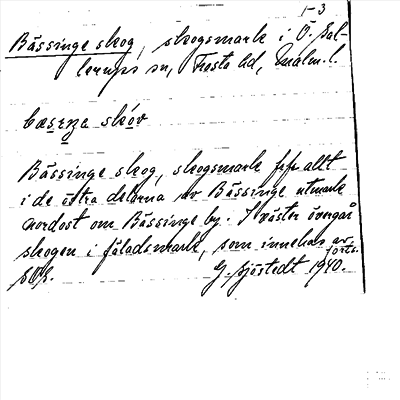 1-3
Bässinge skog, skogsmark i Ö. Sal-
lerups sn, Frosta hd, Malm. l.
bæseŋa skóv
Bässinge skog, skogsmark frfr allt
i de östra delarna av Bässinge utmark
nordost om Bässinge by. I väster övergår
skogen i fäladsmark, som innehas av
forts.
G. Sjöstedt 1940.